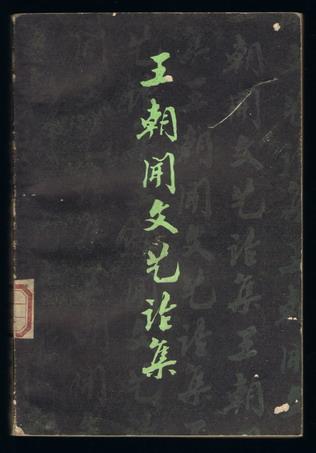 王朝闻文艺论集